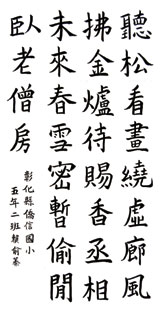 聽松看畫繞虛廊風
拂金爐待賜香丞相
未來春雪密暫偷閒
臥老僧房
彰化縣僑信國小
五年二班賴俞蓁